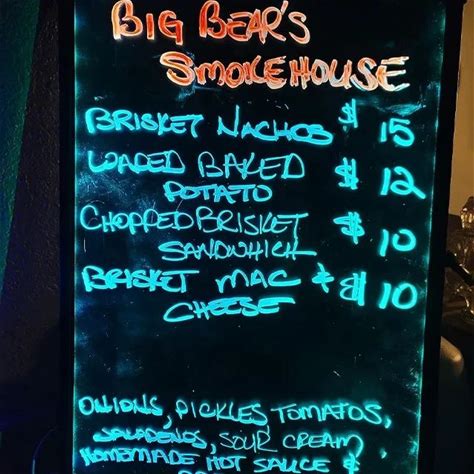 BIG BEAR'S
SMOKEHOUSE
BRISKET NACHOS $ 15
LOADED BAKED
POTATO $ 12
CHOPPED BRISKET
SANDWHICH $ 10
BRISKET MAC &
CHEESE $ 10
ONIONS, PICKLES TOMATOS,
JALAPENOS, SOUR CREAM
HOMEMADE HOT SAUCE &